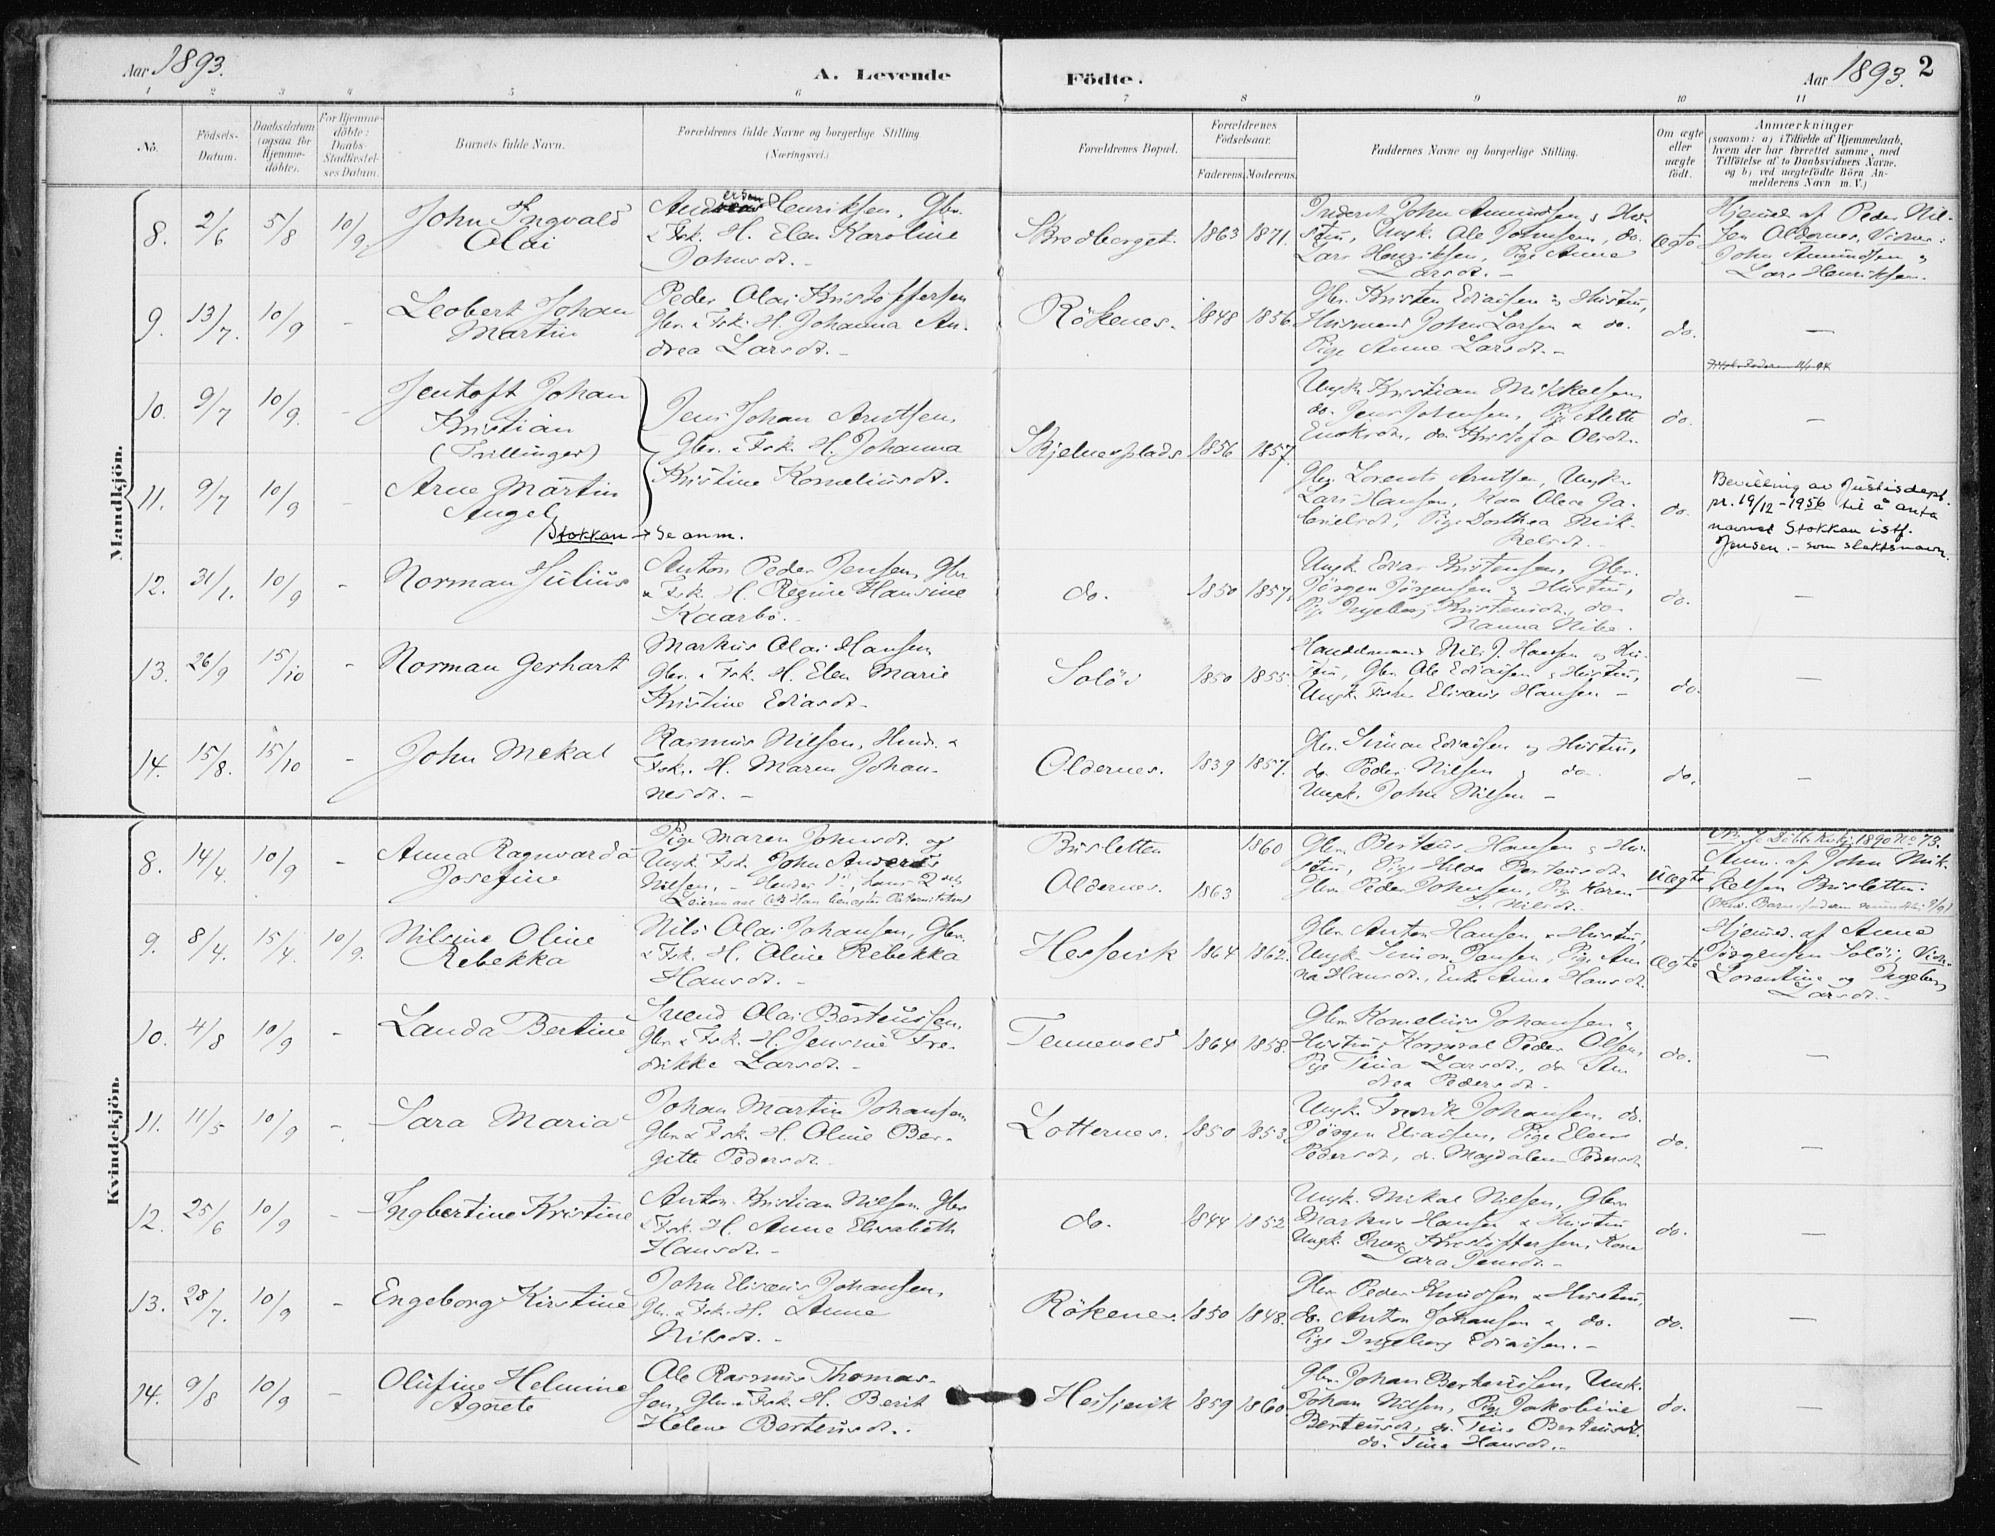 Aar 1893.
A. Levende Födte.
Aar 1893. 2
1 2 3 4 5 6 7 8 9 10 11
No.
Födsels-Datum.
Daabsdatum (ogsaa for Hjemmedöbte).
For Hjemmedöbte: Daabs-Stadfæstelses Datum.
Barnets fulde Navn.
Forældrenes fulde Navne og borgerlige Stilling. (Næringsvei.)
Forældrenes Bopæl.
Forældrenes Födselsaar.
Faderens. Moderens.
Faddernes Navne og borgerlige Stilling.
Om ægte eller uægte födt.
Anmærkninger
(saasom: a) i Tilfælde af Hjemmedaab, hvem der har forrettet samme, med Tilföielse af to Daabsvidners Navne, og b) ved uægtefödte Börn Anmelderens Navn m. V.)
Mandkjön.
8. 2/6 5/8 10/9.
John Ingvald
Olai
Andersen Henriksen, Gbr.
& Fsk. H. Elen Karoline
Johnsdt. -
Bredberget. 1863 1871.
John Amundsen & Hu-
stru, Ungk. Ole Johnsen, do.
Lars Henriksen, Pige Anne
Larsdt. -
ægte
Hjemd. af Peder Nil-
sen Oldernes, Vidner:
John Amundsen &
Lars Henriksen.
9. 13/7. 10/9 -
Leobert Johan
Martin
Peder Olai Kristoffersen
Gbr. & Fsk. H. Johanna An-
drea Larsdt. -
Rökenes. 1848 1856
Gbr. Kristen Ediassen & Hustru,
Husmand John Larsen & do.
Pige Anne Larsdt. -
do. -
10. 9/7 10/9. -
Jentoft Johan
Kristian
(Tvillinger)
Jens Johan Arntsen,
Gbr. & Fsk. H. Johanna
Kristine Korneliusdt.
Skjelnesplads 1856 1857.
Ungk. Kristian Mikkelsen,
do. Jens Johnsen, Pige Alette
Enoksdt., do. Kristofa Olsdt.
do. -
11. 9/7 10/9 -
Arne Martin
Angel
Stokkan → Se anm.
Gbr. Lorents Arntsen, Ungk.
Lars Hansen, Kone Olava Ga-
brielsdt., Pige Dorthea Mik-
kelsdt. -
do.
Bevilling av Justisdept.
pr. 19/12-1956 til å anta
navnet Stokkan istf.
Jensen. - som slektsnavn.
12. 31/1. 10/9 -
Norman Julius
Anton Peder Jensen, Gbr.
& Fsk. H. Regine Hansine
Kaarbö. -
do. 1850 1857.
Ungk. Edias Kristensen, Gbr.
Jörgen Jörgensen & Hustru,
Pige Ingeborg Kristensdt., do.
Nanna Nibe.
do. -
13. 26/9 15/10 -
Norman Gerhart
Markus Olai Hansen,
Gbr. & Fsk. H. Elen Marie
Kristine Ediasdt.
Solöi 1850 1855.
Handelsmand Nils J. Hansen og Hu-
stru, Gbr. Ole Ediassen & Hustru,
Ungk. Fisker Elisæus Hansen -
do. -
14. 15/8. 15/10 -
John Mekal
Rasmus Nilsen, Husm. &
Fsk. H. Maren Johan-
nesdt. -
Oldernes. 1839 1857.
Gbr. Simon Ediassen og Hustru,
do. Peder Nilsen & do.
Ungk. John Nilsen -
do. -
Kvindekjön.
8. 14/4. 10/9 -
Anna Ragnvarda
Josefine
Pige Maren Johnsdt. og
Ungk. Fsk. John Anderas
Nilsen,
Busletten 1860
Oldernes. 1863
Gbr. Berteus Hansen & Hu-
stru, Pige Hilda Berteusdt.
Gbr. Peder Johnsen, Pige Karen
Nilsdt. -
Uægte
1890 No 73.
Anm. af John Mik-
kelsen Busletten.
9. 8/4. 15/4. 10/9.
Nilsine Oline
Rebekka
Nils Olai Johansen, Gbr.
& Fsk. H. Oline Rebekka
Hansdt. -
Hessevik 1864 1862.
Gbr. Anton Hansen & Hustru,
Ungk. Simon Jensen, Pige An-
na Hansdt., Enke Anne Hansdt.
ægte
Hjemd. af Anne
Jörgensen Solöi, Vidn.
Lorentine og Ingeborg
Larsdt. -
10. 4/8 10/9 -
Landa Bertine
Svend Olai Berteussen,
Gbr. & Fsk. H. Jensine Fre-
drikke Larsdt. -
Tennevold 1864 1858.
Gbr. Kornelius Johansen &
Hustru, Korporal Peder Olsen,
Pige Tina Larsdt., do. An-
drea Pedersdt. -
do. -
11. 11/5 10/9 -
Sara Maria
Johan Martin Johansen,
Gbr. & Fsk. H. Oline Ber-
gitte Pedersdt.
Lotternes. 1850 1853.
Ungk. Fredrik Johansen, do.
Jörgen Eliassen, Pige Elen
Pedersdt., do. Magdalena Pedersdt.
do. -
12. 25/6 10/9 -
Ingbertine Kristine
Anton Kristian Nilsen, Gbr.
& Fsk. H. Anne Elisabeth
Hansdt. -
do. 1844 1852
Ungk. Mikal Nilsen, Gbr.
Markus Hansen & Hustru
Ungk. Kristoffersen, Kone
Sara Jensdt. -
do. -
13. 28/7. 10/9 -
Engeborg Kirstine
John Elisæus Johansen,
Gbr. & Fsk. H. Anne
Nilsdt. -
Rökenes. 1850 1848.
Gbr. Peder Knudsen & Hustru,
do. Anton Johansen & do.
Pige Ingeborg Ediassen. -
do. -
14. 9/8 10/9 -
Olufine Helmine
Agnete
Ole Rasmus Thomas-
sen, Gbr. & Fsk. H. Berit
Helene Berteusdt.
Hessevik 1859 1860.
Gbr. Johan Berteussen, Ungk.
Johan Nilsen, Pige Jakobine
Berteusdt., do. Tina Berteusdt.
do. Tina Hansdt. -
do. -